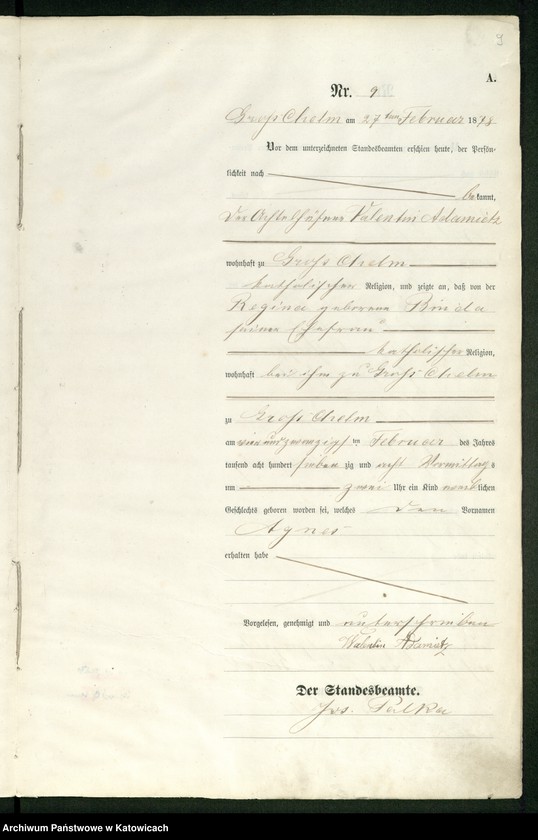 9
A.
Nr. 9
Gross Chelm am 27ten Februar 1878
Vor dem unterzeichneten Standesbeamten erschien heute, der Persön-
lichkeit nach
bekannt,
Der Achtelhüfner Valentin Adamietz
wohnhaft zu Gross Chelm
katholischer Religion, und zeigte an, daß von der
Regina geborene Binda
seiner Ehefrau
katholischer Religion,
wohnhaft bei ihm zu Gross Chelm
zu Gross Chelm
am zwanzigsten Februar des Jahres
tausend acht hundert siebenzig und acht Vormittags
um zwei Uhr ein Kind weiblichen
Geschlechts geboren worden sei, welches den Vornamen
Agnes
erhalten habe
Vorgelesen, genehmigt und unterschrieben
Walentin
Der Standesbeamte.
Jos. Palka
Archiwum Państwowe w Katowicach